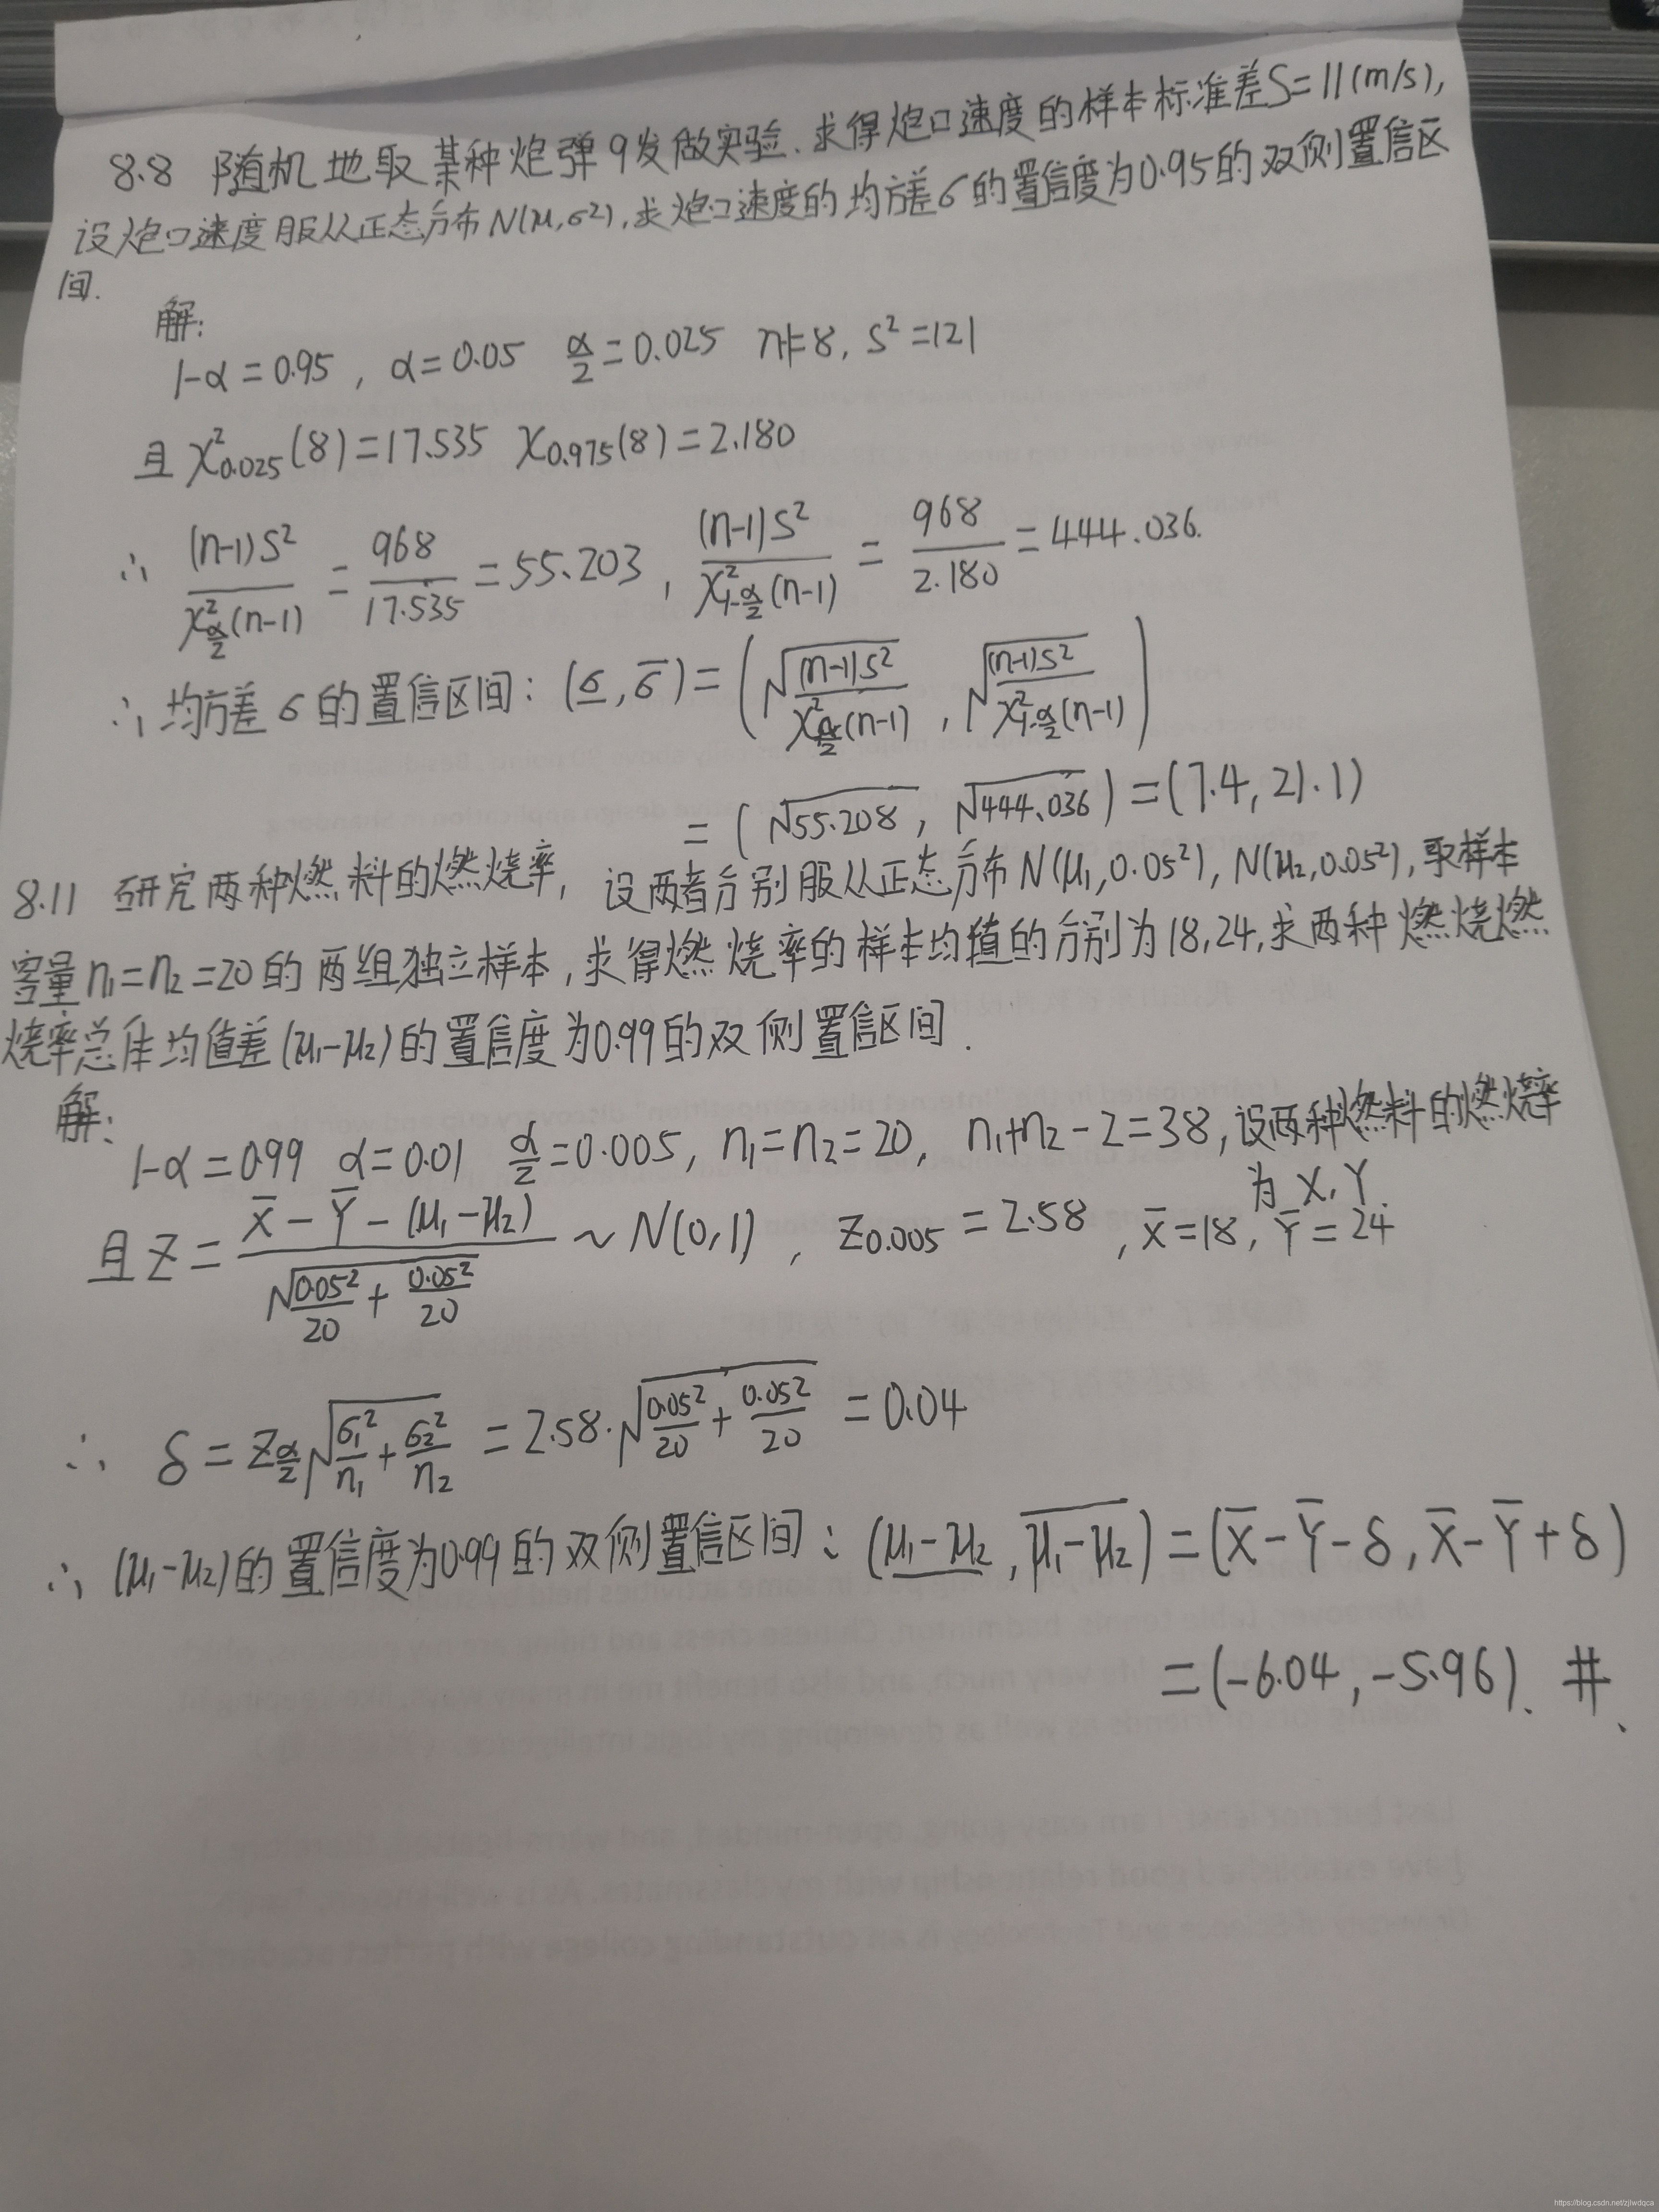 8.8 随机地取某种炮弹9发做实验.求得炮口速度的样本标准差S=11(m/s),
设炮口速度服从正态分布N(μ,σ²),求炮口速度的均方差σ的置信度为0.95的双侧置信区
间.
解:
1-α=0.95, α=0.05 α/2=0.025 n-1=8, S²=121
且 χ²0.025(8)=17.535 χ0.975(8)=2.180
∴ (n-1)S²/χ²α/2(n-1) = 968/17.535 = 55.203, (n-1)S²/χ²1-α/2(n-1) = 968/2.180 = 444.036.
∴ 均方差σ的置信区间: (σ̲, σ̅) = (√((n-1)S²/χ²α/2(n-1)), √((n-1)S²/χ²1-α/2(n-1)))
= (√55.208, √444.036) = (7.4, 21.1)
8.11 研究两种燃料的燃烧率, 设两者分别服从正态分布N(μ1,0.05²), N(μ2,0.05²), 取样本
容量n1=n2=20的两组独立样本,求得燃烧率的样本均值的分别为18,24,求两种燃烧燃
烧率总体均值差(μ1-μ2)的置信度为0.99的双侧置信区间.
解:
1-α=0.99 α=0.01 α/2=0.005, n1=n2=20, n1+n2-2=38, 设两种燃料的燃烧率
为X,Y.
且 Z = (X̅-Y̅-(μ1-μ2))/√(0.05²/20+0.05²/20) ~ N(0,1), Z0.005=2.58, X̅=18, Y̅=24
∴ δ = Zα/2√(σ1²/n1+σ2²/n2) = 2.58·√(0.05²/20+0.05²/20) = 0.04
∴ (μ1-μ2)的置信度为0.99的双侧置信区间: (μ̲1̲-̲μ̲2̲, μ̅1̅-̅μ̅2̅) = (X̅-Y̅-δ, X̅-Y̅+δ)
= (-6.04, -5.96). #.
https://blog.csdn.net/zjlwdqca